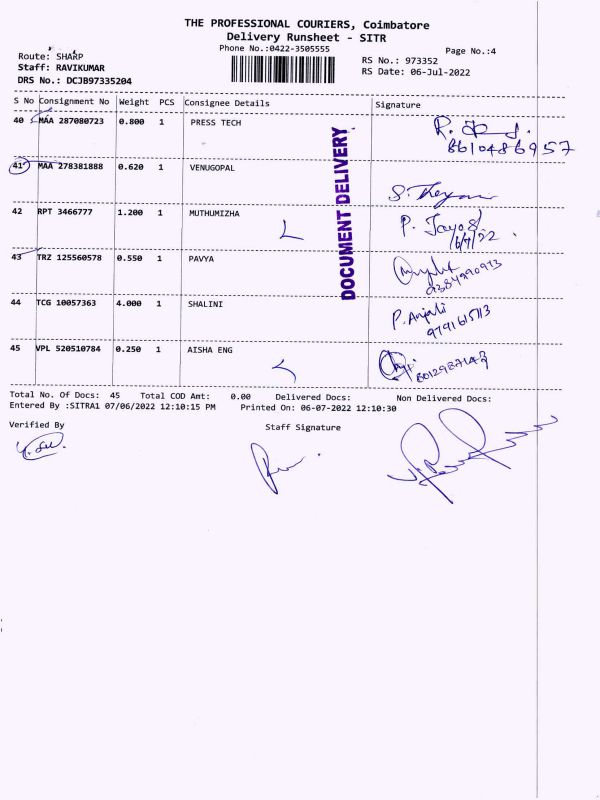 THE PROFESSIONAL COURIERS, Coimbatore
Delivery Runsheet - SITR
Phone No.:0422-3505555
Page No.:4
Route: SHARP
RS No.: 973352
Staff: RAVIKUMAR
RS Date: 06-Jul-2022
DRS No.: DCJB97335204
S No Consignment No Weight PCS Consignee Details Signature
40 MAA 287080723 0.800 1 PRESS TECH
8610486957
41 MAA 278381888 0.620 1 VENUGOPAL
42 RPT 3466777 1.200 1 MUTHUMIZHA
43 TRZ 125560578 0.550 1 PAVYA
44 TCG 10057363 4.000 1 SHALINI P. Anjali
45 VPL 520510784 0.250 1 AISHA ENG
DOCUMENT DELIVERY
Total No. Of Docs: 45 Total COD Amt: 0.00 Delivered Docs: Non Delivered Docs:
Entered By :SITRA1 07/06/2022 12:10:15 PM Printed On: 06-07-2022 12:10:30
Verified By Staff Signature